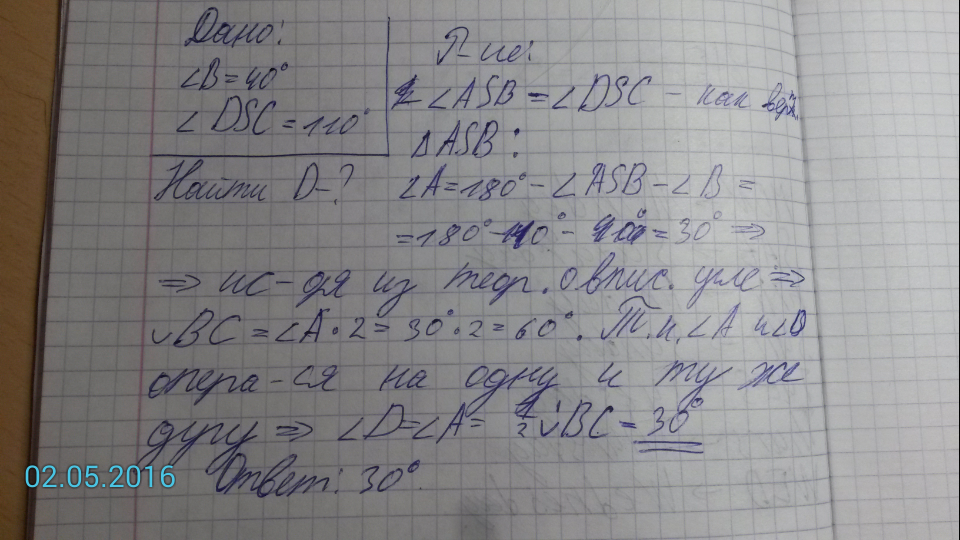 Дано:
∠B=40°
∠DSC=110°
Найти D-?
Р-ие:
∠ASB=∠DSC - как верт.
△ASB:
∠A=180°-∠ASB-∠B=
=180°-110°-40°=30° ⇒
⇒ ис-дя из теор. о впис. угле ⇒
∪BC=∠A·2=30°·2=60°. Т.к. ∠A и ∠D
опира-ся на одну и ту же
дугу ⇒ ∠D=∠A= 1/2 ∪BC=30°
Ответ: 30°.
02.05.2016